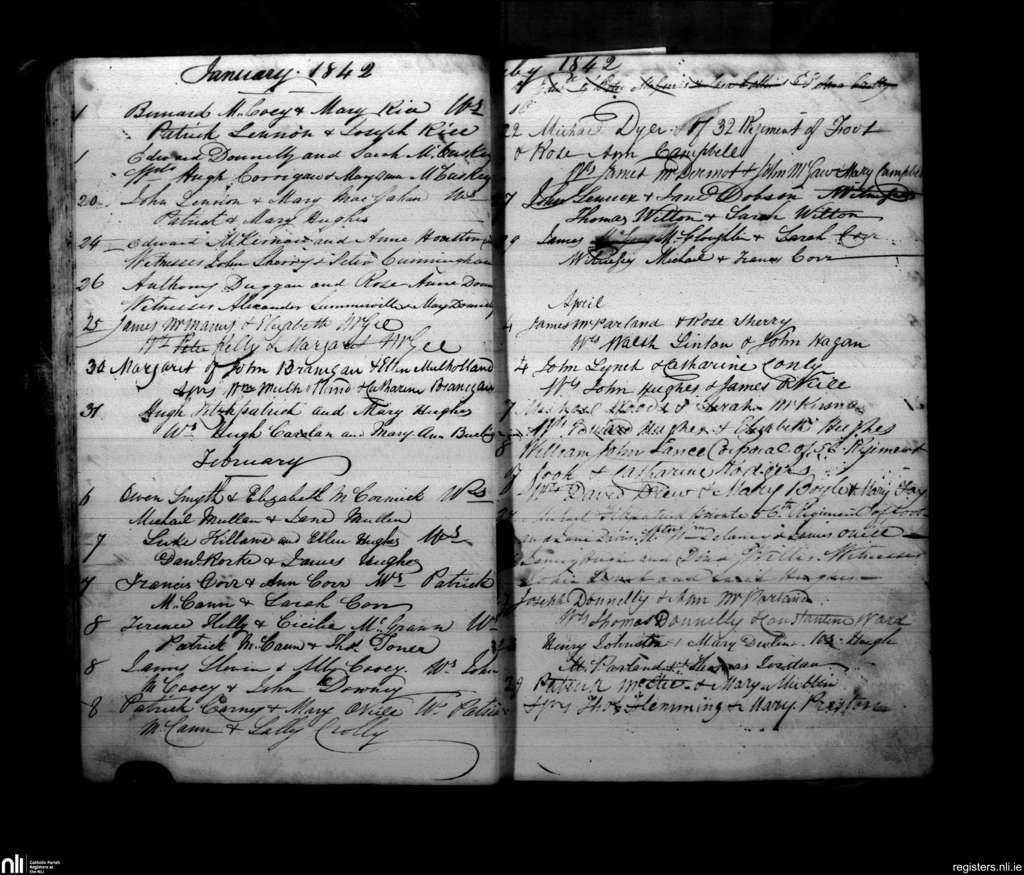 January. 1842
1 Bernard McCovey & Mary Rice Ws
Patrick Lennon & Joseph Rice
1 Edward Donnelly and Sarah McCuskey
Hugh Corrigan & Mary Ann McCuskey
20 John Lennon & Mary MacGahan Ws
Patrick & Mary Hughes
24 Edward McKernan and Anne Houston
Witnesses John Sherry & Peter Cunningham
26 Anthony Duggan and Rose Anne
Witnesses Alexander Summerville & Mary
25 James McManus & Elizabeth McGee
Ws Peter Kelly & Margaret McGee
30 Margaret of John Branigan & Ellen Mulholland
Sprs Wm Mulholland & Catharine Branigan
31 Hugh Fitzpatrick and Mary Hughes
Ws Hugh Carolan and Mary Ann
February
6 Owen Smyth & Elizabeth McCormick Ws
Michael Mullen & Jane Mullen
7 Luke Killane and Ellen Hughes Ws
Danl Rorke & James Hughes
7 Francis Corr & Ann Corr Ws Patrick
McCann & Sarah Corr
8 Terence Kelly & Cicilia McCrann Ws
Patrick McCann & Thos Toner
8 James Slevin & Ally Covey Ws John
McCovey & John Downey
8 Patrick Carney & Mary O'Neill Ws
McCann & Sally Crolly
1842
22 Michael Dyer of 32 Regiment of Foot
& Rose Ann Campbell
Ws James McDermot & John McGaw Mary Campbell
27 John & Jane Dobson
Thomas Wilton & Sarah Wilton
29 James McGloughlin & Sarah Corr
Witnesses Michael & Frances Corr
April
4 James McParland & Rose Sherry
Ws Walsh Linton & John Hagan
4 John Lynch & Catharine Conly
Ws John Hughes & James O'Neill
7 Michael Woods & Sarah McKernan
Ws Edward Hughes & Elizabeth Hughes
8 William John Lance Corporal of 56 Regiment
of Foot & Catharine Rodgers
Ws David Drew & Mary Boyle & Mary
Michael Fitzpatrick private 56th Regiment of Foot
and Jane Ws Wm Delaney & James O'Neill
and Witnesses
and
Joseph Donnelly & Ann McParland
Ws Thomas Donnelly & Constantine Ward
Henry Johnston & Mary Devlin Ws Hugh
McParland & Thomas Jordan
29 Patrick & Mary
Sprs Thos Flemming & Mary Preston
nli
Catholic Parish
Registers at
the NLI
registers.nli.ie